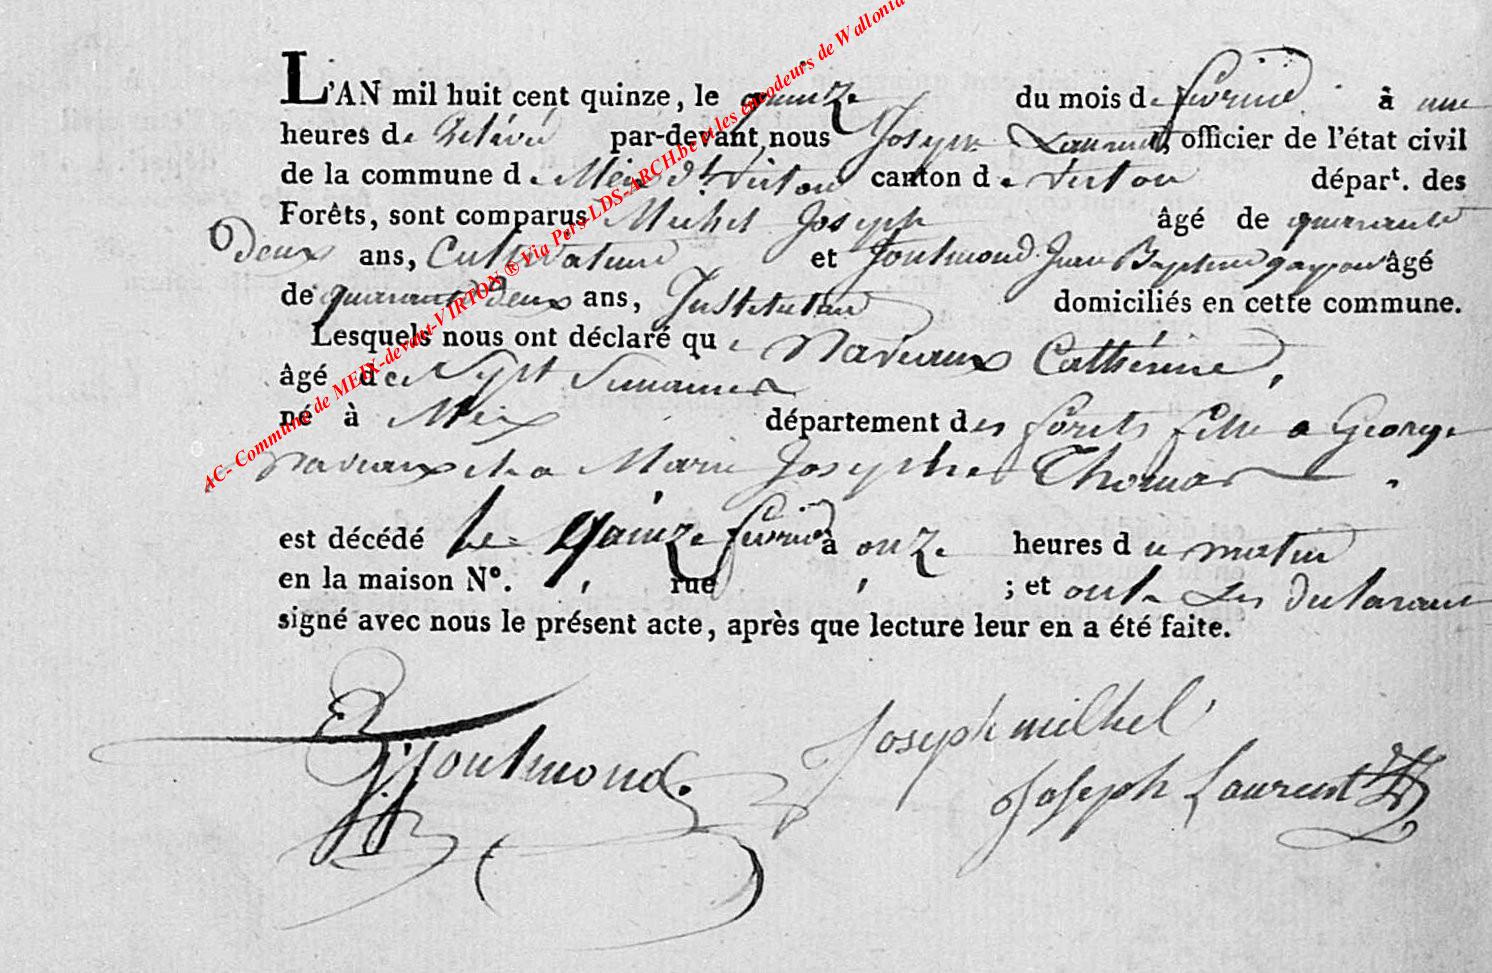 L'AN mil huit cent quinze, le quinze du mois de fevrier à une
heures de relévé par-devant nous Joseph Laurent, officier de l'état civil
de la commune de Meix dt Virton canton de Virton départ. des
Forêts, sont comparus Michel Joseph âgé de quarante
Deux ans, Cultivateur et foulmond Jean Baptiste âgé
de quarante deux ans, Instituteur domiciliés en cette commune.
Lesquels nous ont déclaré que Naviaux Cathérine,
âgé de Sept Semaines
né à Meix département des forets fille a George
naviaux et a Marie Josephe Thomas
est décédé le quinze fevrier à onze heures du matin
en la maison No. , rue , ; et ont les declarants
signé avec nous le présent acte, après que lecture leur en a été faite.
foulmond. Joseph milhel
Joseph Laurent
AC- Commune de MEIX-devant-VIRTON ® Via Pers-LDS-ARCH.be et les encodeurs de Wallonia